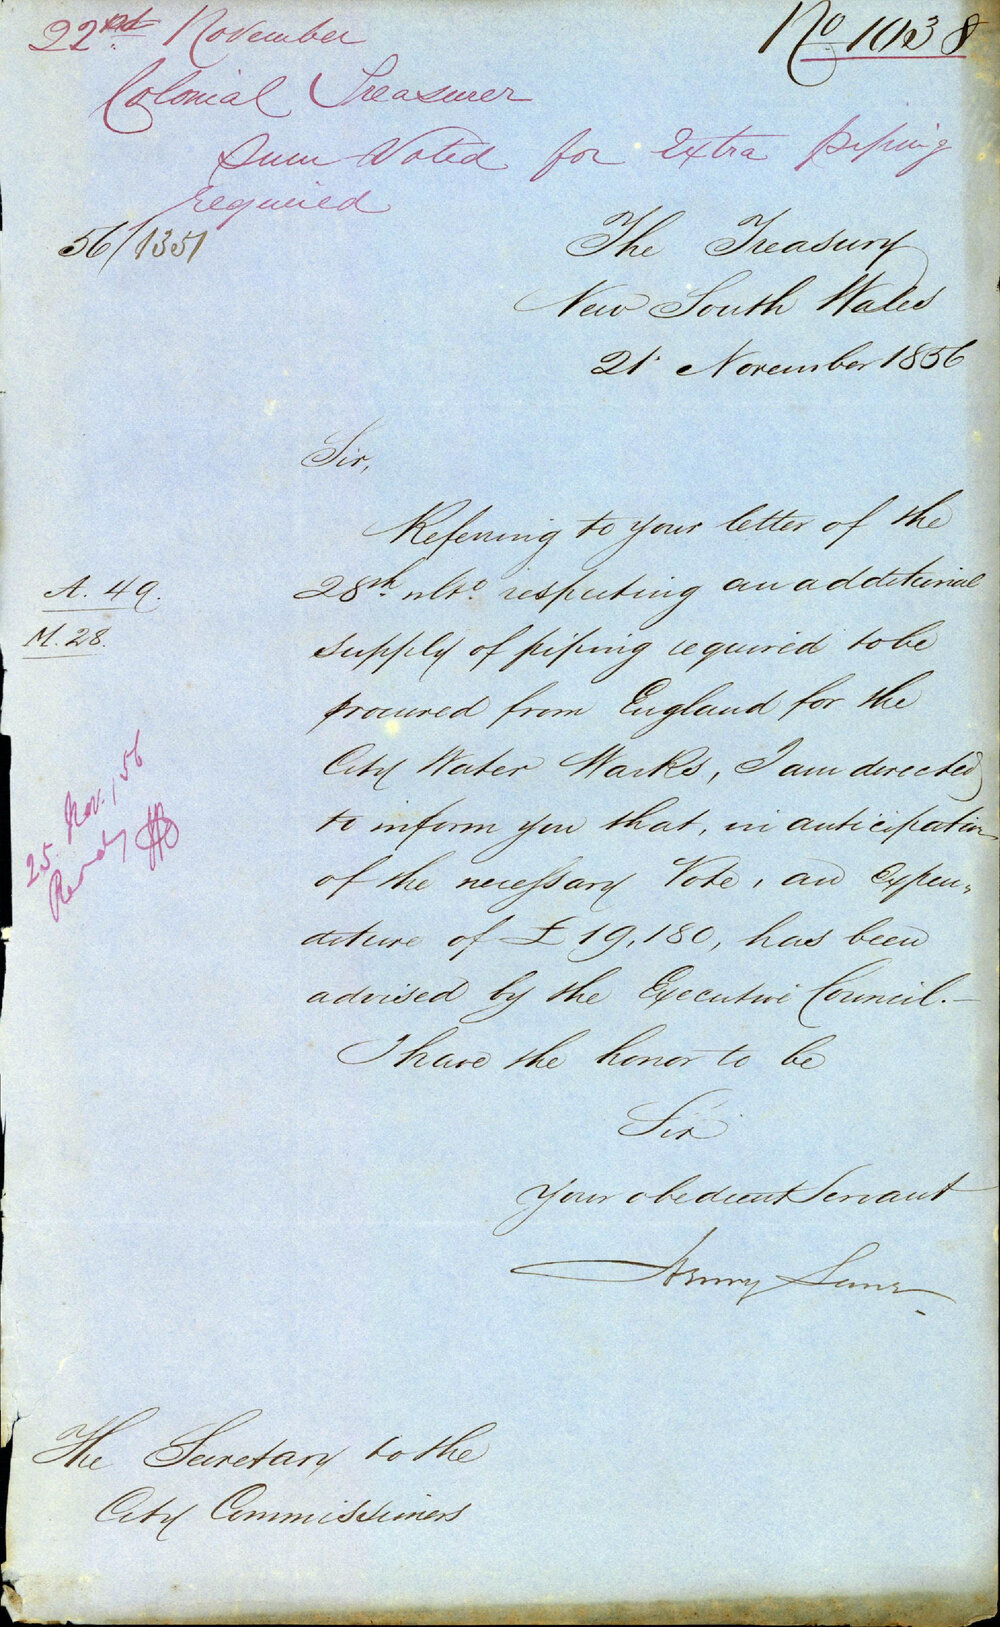 22nd. November
No 1038
Colonial Treasurer
Sum Voted for Extra piping
required
56/1351
The Treasury
New South Wales
21. November 1856
Sir,
Referring to your letter of the
28th. ulto. respecting an additional
A. 49.
supply of piping required to be
M. 28.
procured from England for the
City Water Works, I am directed
to inform you that, in anticipation
of the necessary Vote, an expen-
diture of £19,180, has been
advised by the Executive Council.—
25. Nov., 56
Ready
I have the honor to be
Sir
Your obedient Servant
Henry Lane
The Secretary to the
City Commissioners